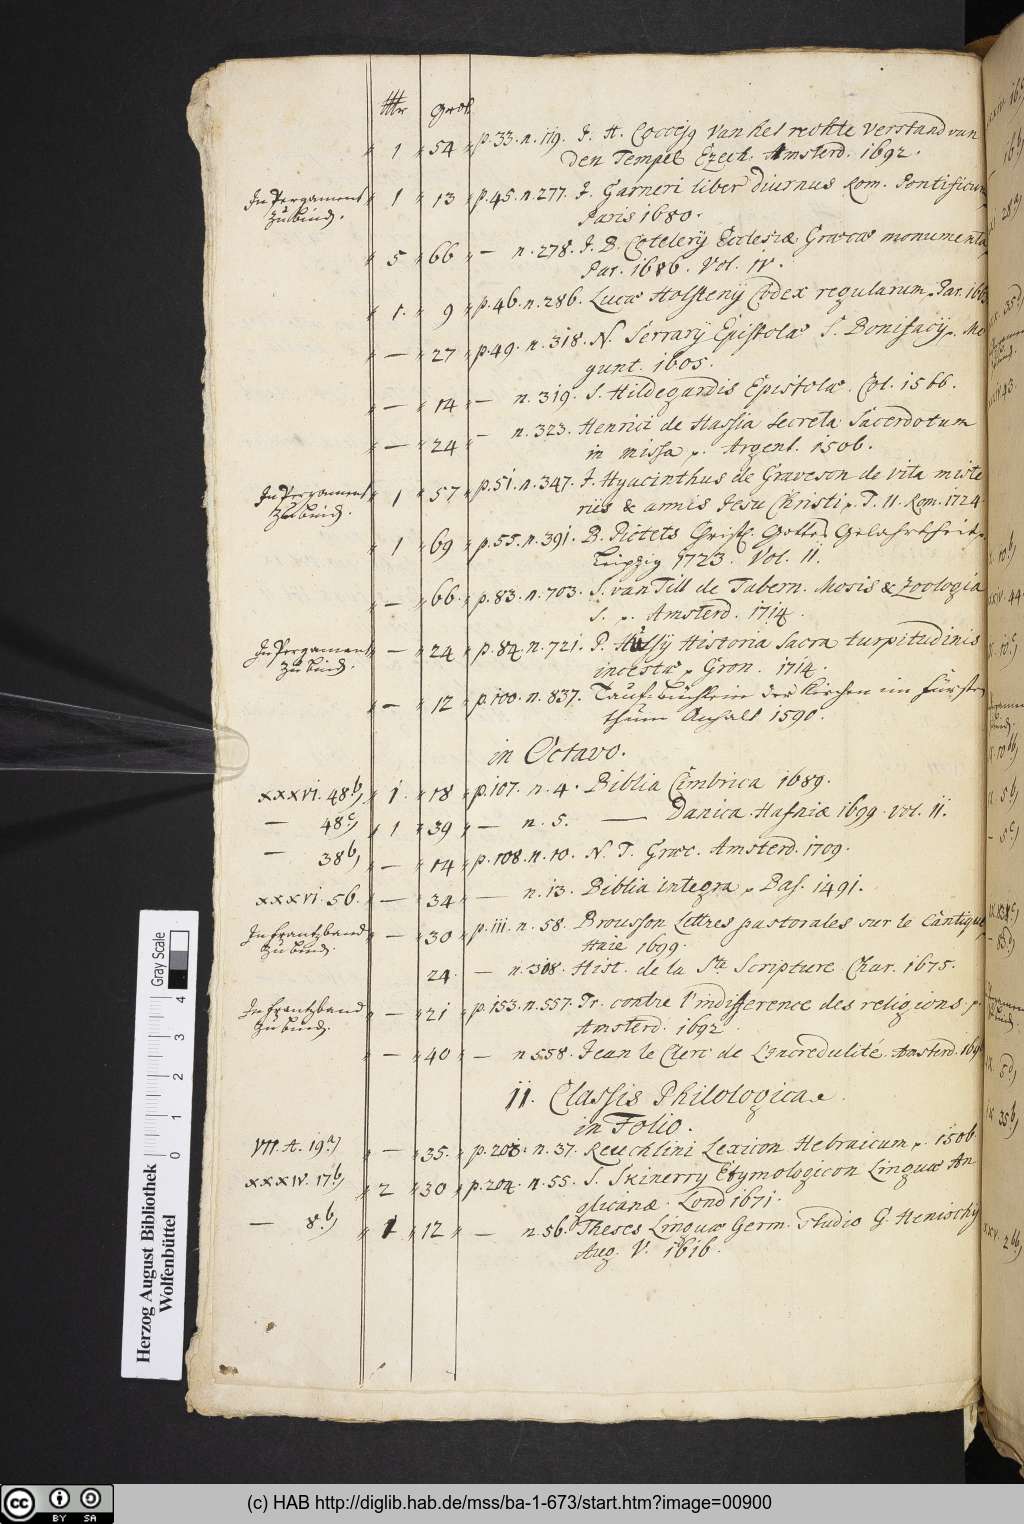 " 1 " 54 " p. 33. n. 119. J. H. Coccejq van het rechte verstand van
den Tempel Ezech. Amsterd. 1692.
In Pergament " 1 " 13 " p. 45. n. 277. J. Garneri liber diurnus Rom. Pontificum
zu bind. Paris 1680.
" 5 " 66 " — n. 278. J. B. Cotelerij Ecclesiæ Græcæ monumenta
Par. 1686. Vol. IV.
" 1. " 9 " p. 46. n. 286. Lucæ Holstenij Codex regularum. Par. 1663
" — " 27 " p. 49. n. 318. N. Serrarij Epistolæ S. Bonifacij. Mo
gunt. 1605.
" — " 14 " — n. 319. S. Hildegardis Epistolæ. Col. 1566.
" — " 24 " — n. 323. Henrici de Hassia secreta Sacerdotum
in missa. Argent. 1506.
In Pergament " 1 " 57 " p. 51. n. 347. J. Hyacinthus de Graveson de vita miste
zu bind. riis & annis Jesu Christi. T. II. Rom. 1724
" 1 " 69 " p. 55. n. 391. B. Pictets Christl. Gottes Gelahrtheit.
Leipzig 1723. Vol. II.
" — " 66. " p. 83. n. 703. S. van Till de Tabern. Mosis & Zoologia
S. Amsterd. 1714.
In Pergament " — " 24 " p. 84. n. 721. P. Historia sacra turpitudinis
zu bind. incestæ, Gron. 1714.
" — " 12 " p. 100. n. 837. Tauf-Büchlein der Kirchen im Fürsten
thum Anhalt 1590.
in Octavo.
XXXVI. 48b) " 1 " 18 " p. 107. n. 4. Biblia Cimbrica 1689.
— 48c) " 1 " 39 " — n. 5. — Danica. Hafniæ 1699. Vol. II.
— 38b) " — " 14 " p. 108. n. 10. N. T. Græc. Amsterd. 1709.
XXXVI. 56. " — " 34 " — n. 13. Biblia integra, Bas. 1491.
In Frantzband " — " 30 " p. 111. n. 58. Brousson Lettres pastorales sur le Cantique
zu bind. Haie 1699.
24. — n. 308. Hist. de la Ste Scripture Char. 1675.
In Frantzband " — " 21 " p. 153. n. 557. Tr. contre l'indifference des religions.
zu bind. Amsterd. 1692
" — " 40 " — n. 558. Jean le Clerc de L'incredulité. Amsterd. 169
II. Classis Philologicae.
in Folio.
VII. A. 19a) " — " 35. " p. 201. n. 37. Reuchlini Lexicon Hebraicum, 1506
XXXIV. 17b) " 2 " 30 " p. 204. n. 55. S. Skinerry Etymologicon Linguæ An
glicanæ. Lond 1671.
— 8b) " 1 " 12 " — n. 56. Theses Linguæ Germ. studio G. Henischij
Aug. V. 1616.
Herzog August Bibliothek
Wolfenbüttel
Gray Scale
0 1 2 3 4
(c) HAB http://diglib.hab.de/mss/ba-1-673/start.htm?image=00900
CC BY SA